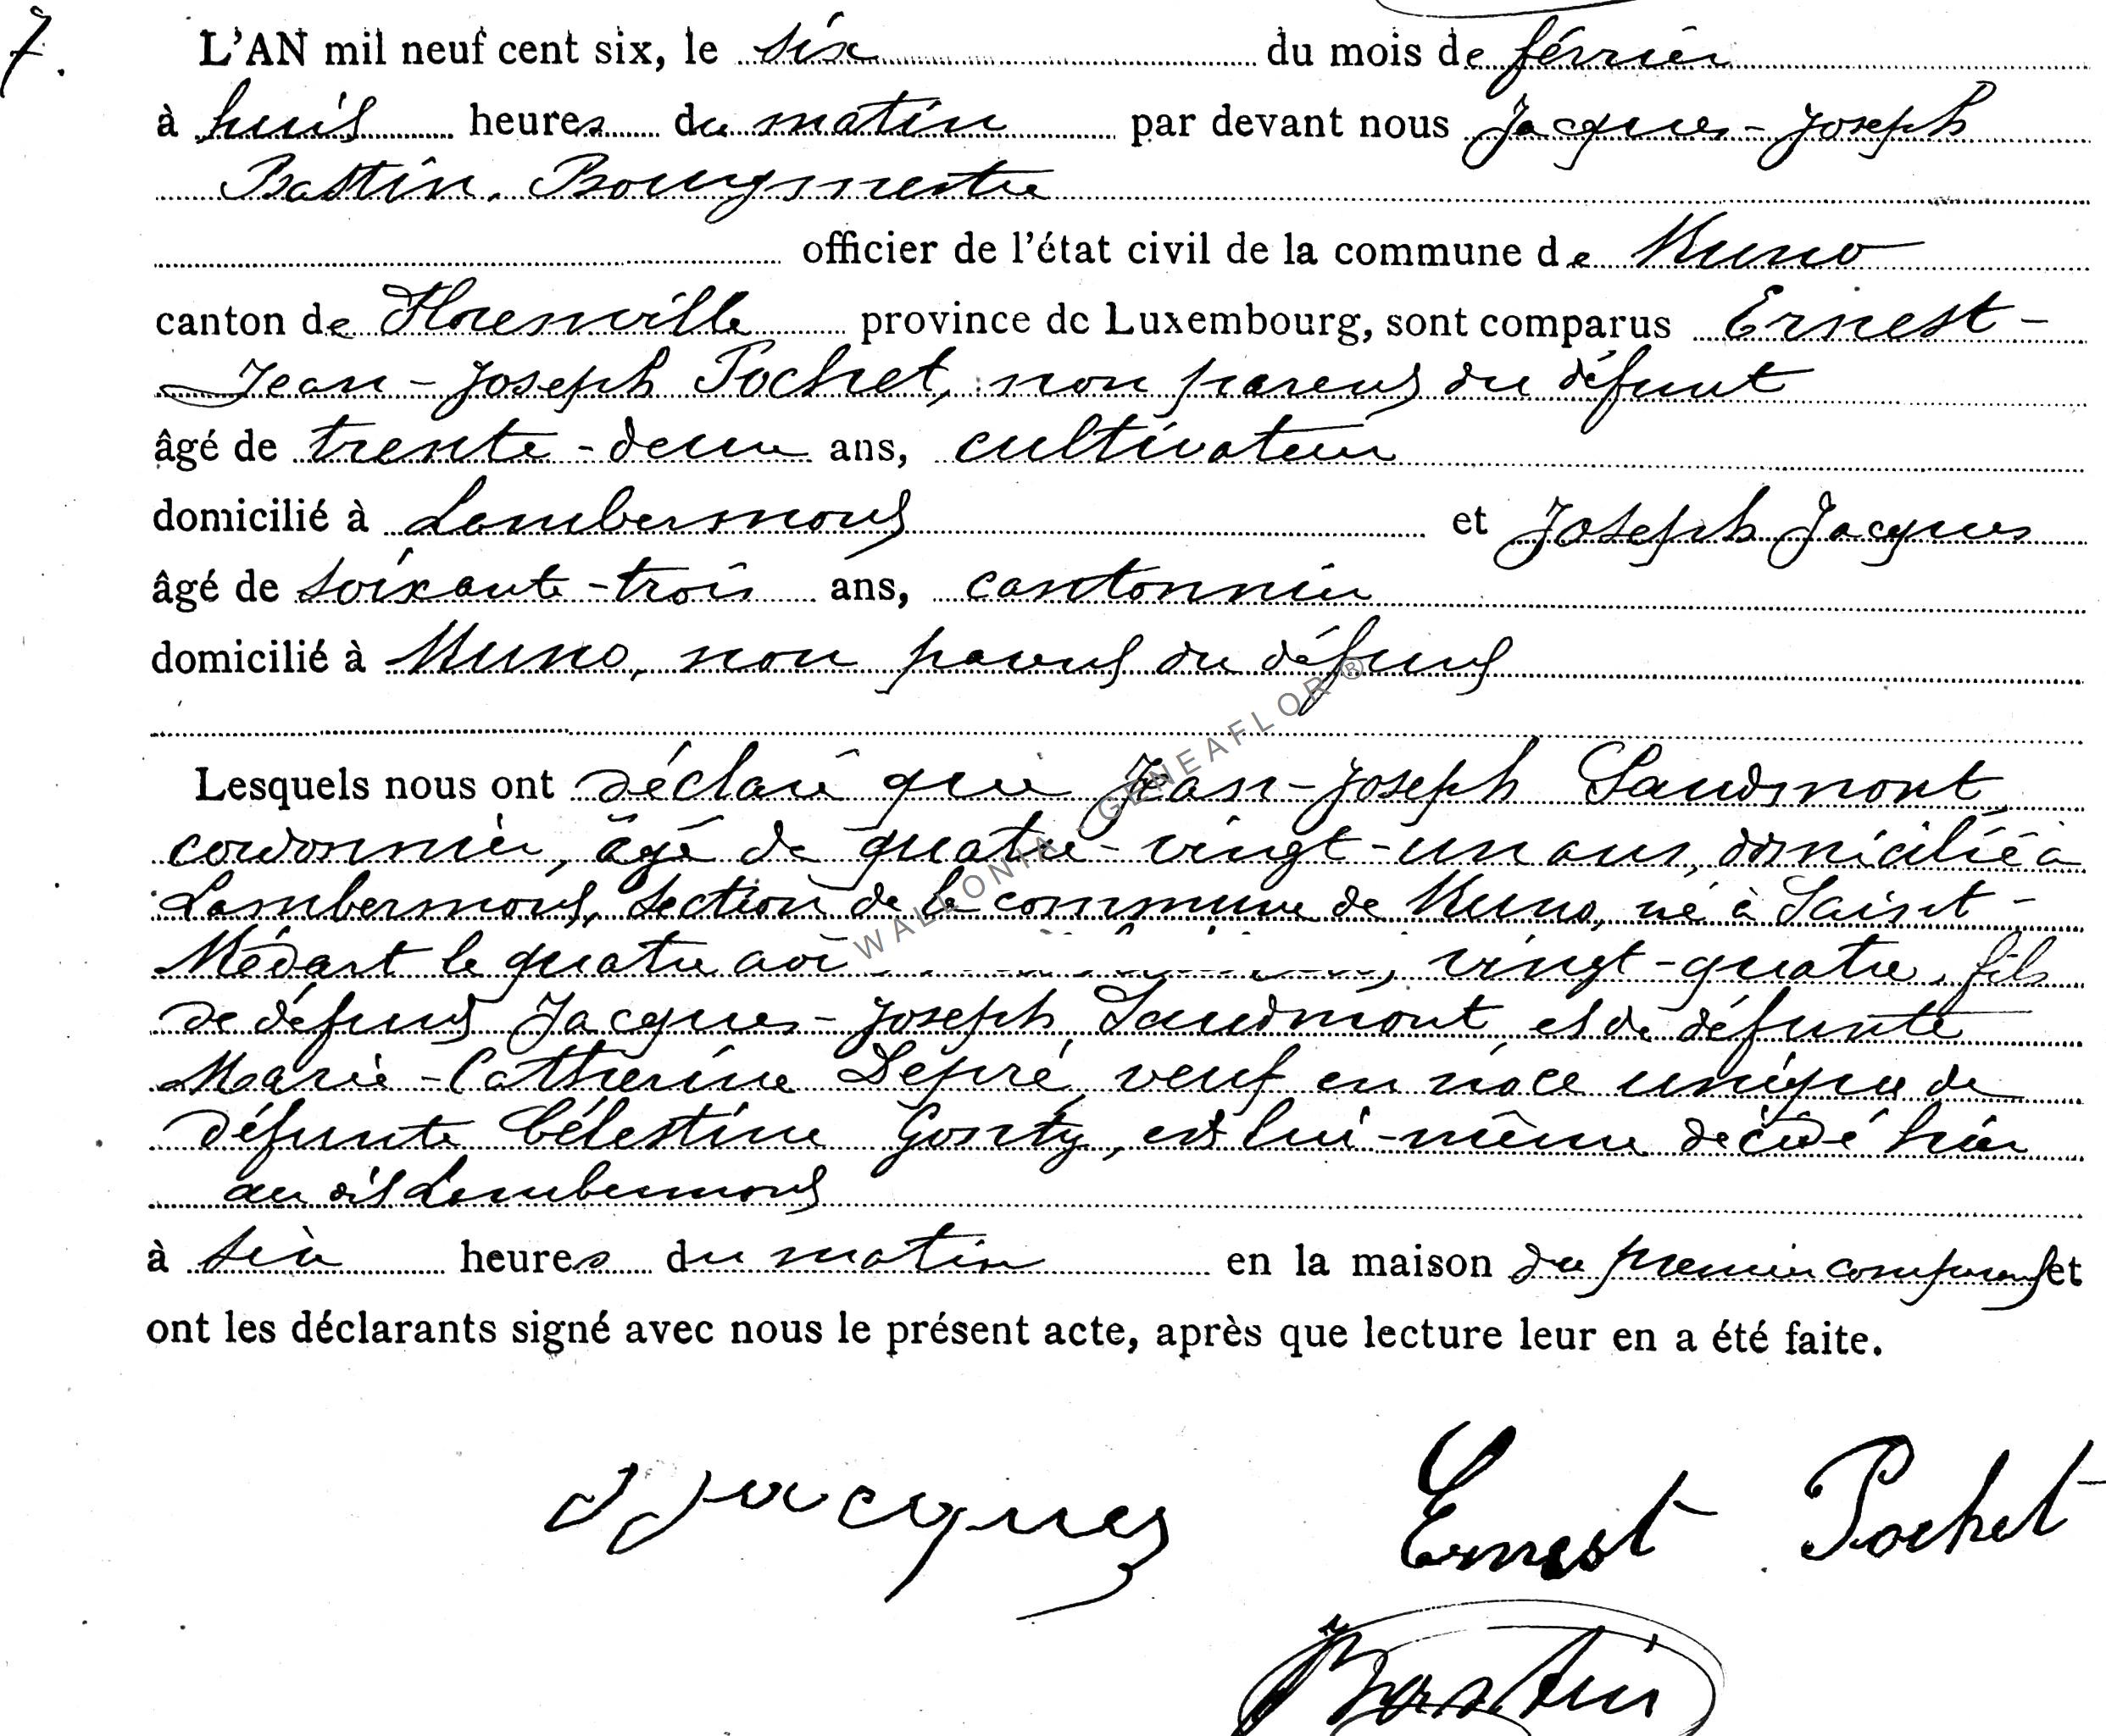 7.
L'AN mil neuf cent six, le six du mois de février
à huit heures du matin par devant nous Jacques-Joseph
Bastin, Bourgmestre
officier de l'état civil de la commune de Muno
canton de Florenville province de Luxembourg, sont comparus Ernest-
Jean-Joseph Pochet, non parent du défunt
âgé de trente-deux ans, cultivateur
domicilié à Lambermont et Joseph Jacques
âgé de soixante-trois ans, cantonnier
domicilié à Muno, non parent du défunt
Lesquels nous ont déclaré que Jean-Joseph Saudmont,
cordonnier, âgé de quatre-vingt-un ans, domicilié à
Lambermont, section de la commune de Muno, né à Saint-
Médart le quatre vingt-quatre, fils
de défunt Jacques-Joseph Saudmont et de défunte
Marie-Catherine Depré, veuf en noce unique de
défunte Célestine Gonty, est lui-même décédé hier
au dit Lambermont
à six heures du matin en la maison du premier comparant et
ont les déclarants signé avec nous le présent acte, après que lecture leur en a été faite.
JJacques Ernest Pochet
Bastin
WALLONIA - GENEAFLOR ®